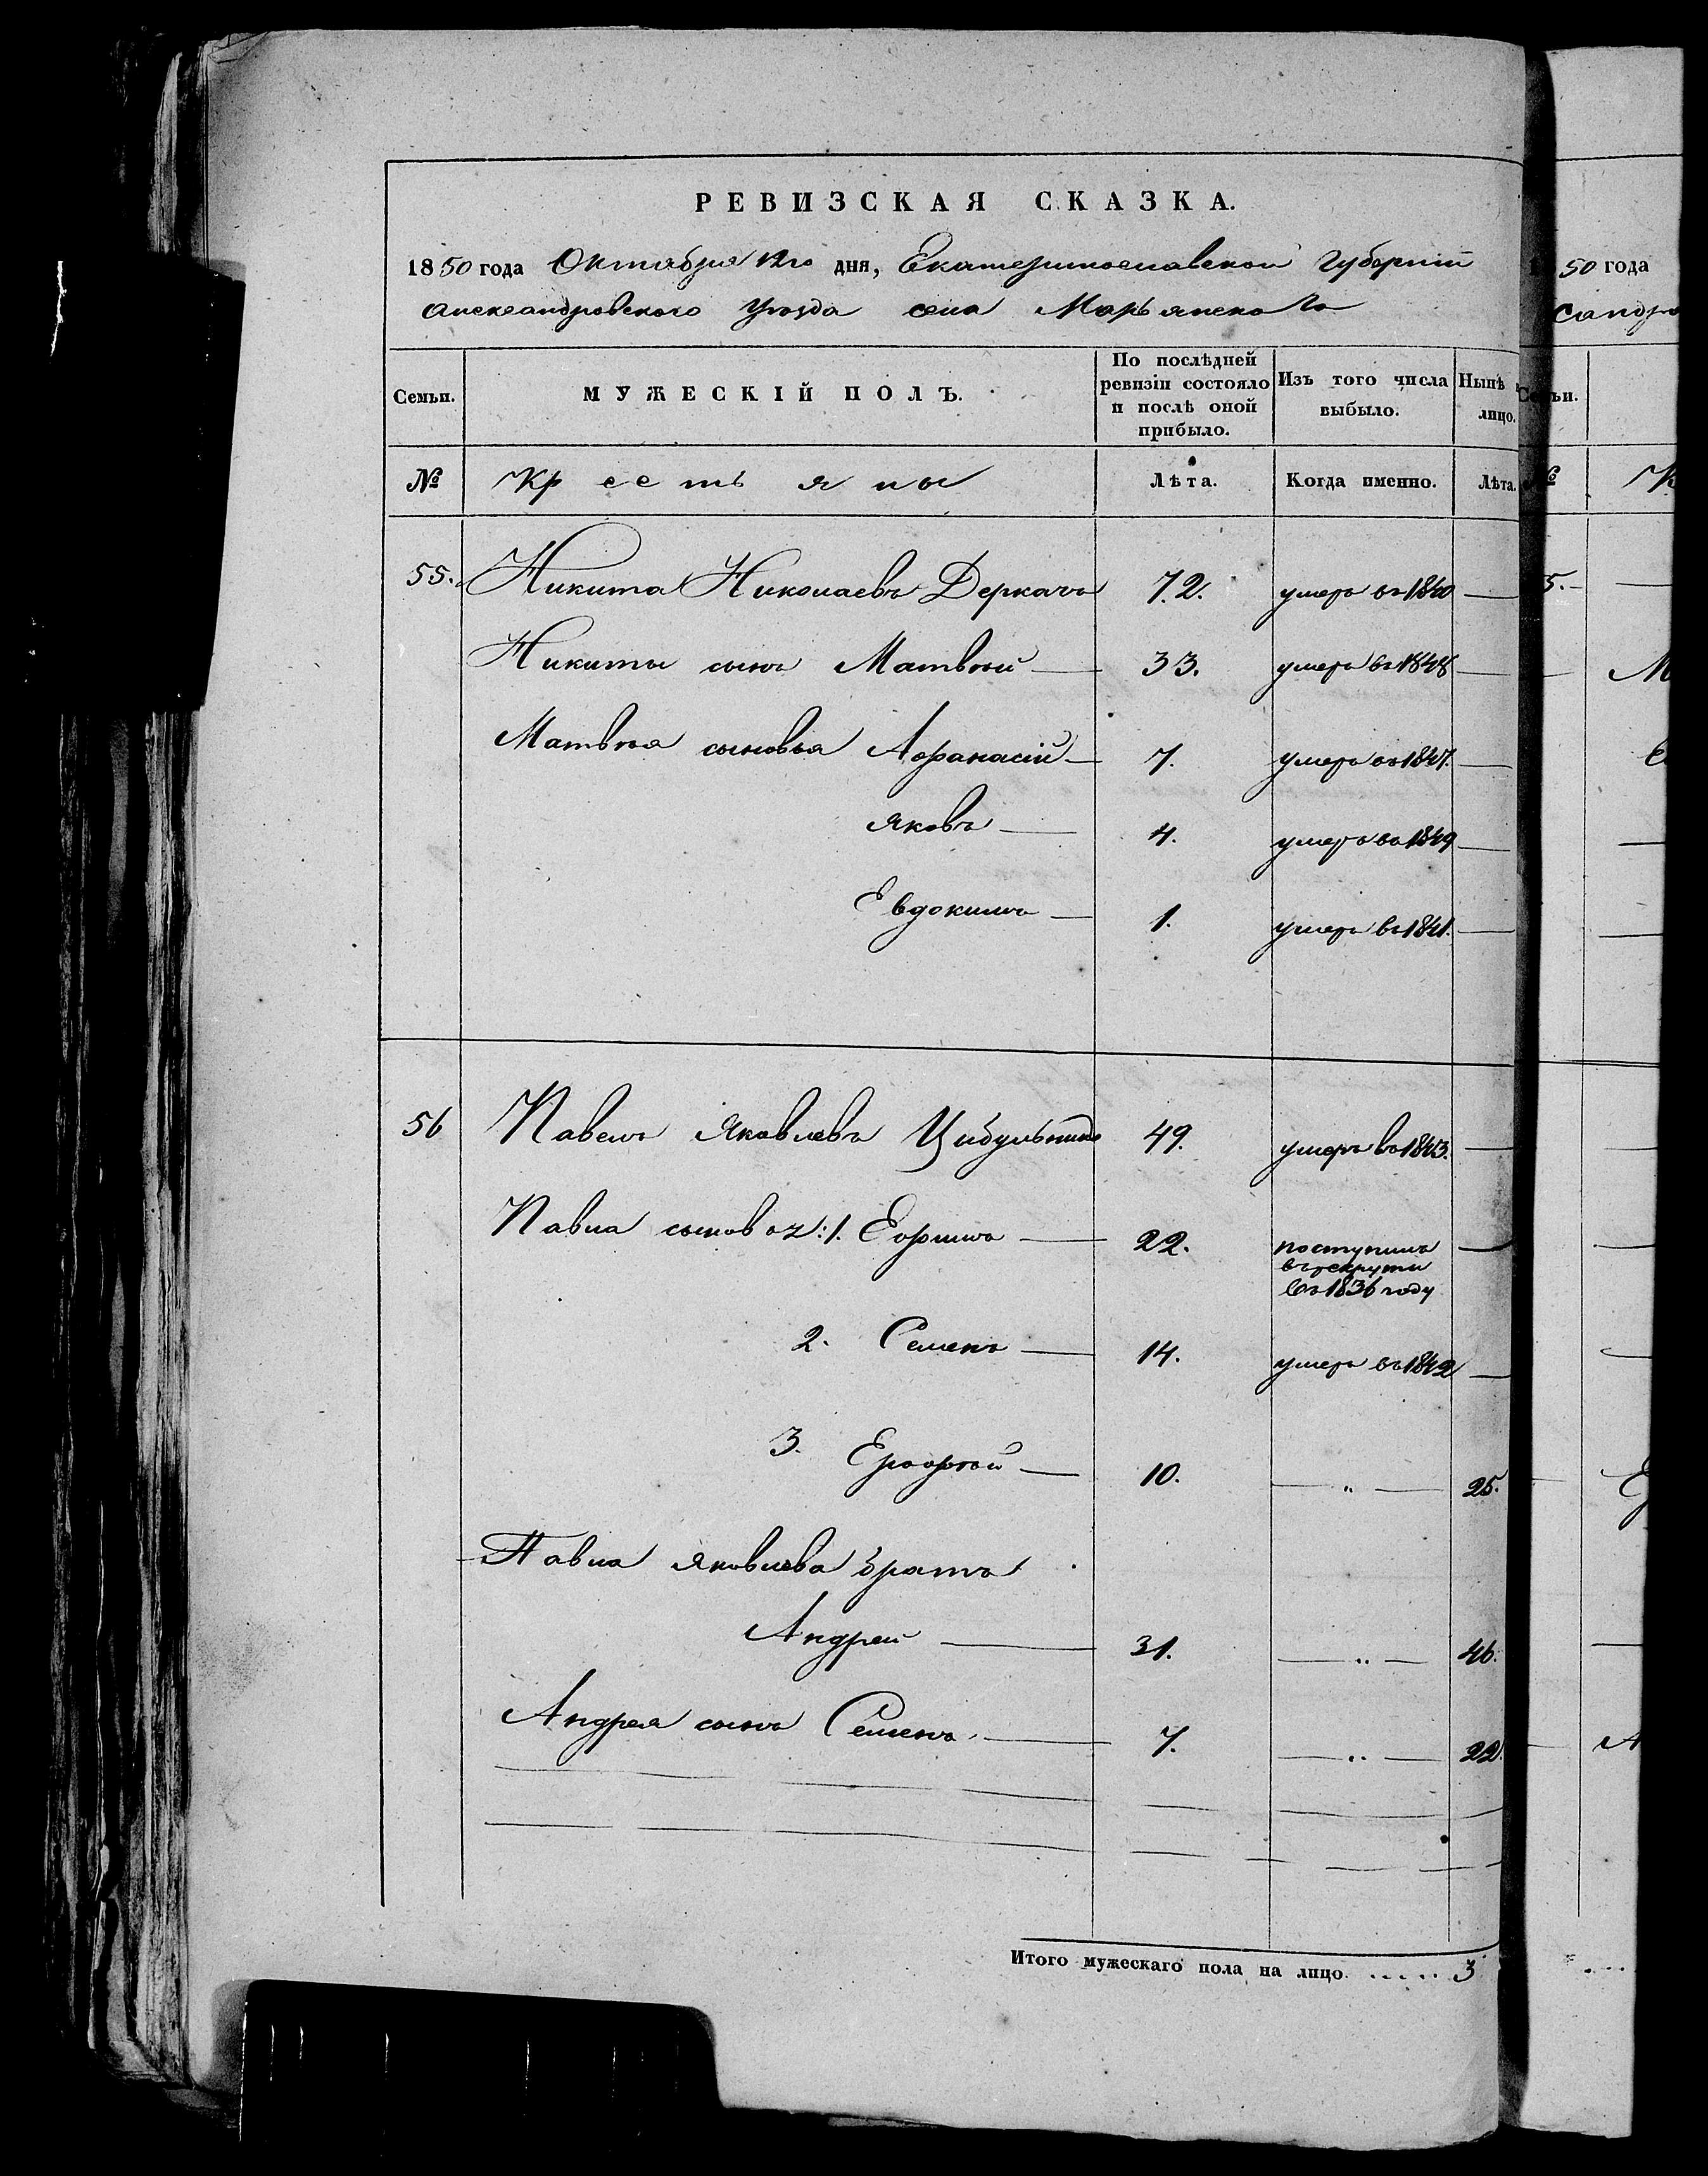 РЕВИЗСКАЯ СКАЗКА.
1850 года Октября 12го дня, Екатеринославской Губернiи
Александровского Уезда села Марьянского
Семьи.
МУЖЕСКIЙ ПОЛЪ.
По послѣдней
ревизiи состояло
и послѣ оной
прибыло.
Изъ того числа
выбыло.
Нынѣ
лицо.
№
Крестьяны
Лѣта.
Когда именно.
Лѣта.
55. Никита Николаевъ Деркачъ 72. умеръ въ 1840 —
Никиты сынъ Матвѣй — 33. умеръ въ 1848 —
Матвѣя сыновья Афанасiй — 7. умеръ въ 1847. —
Яковъ — 4. умеръ въ 1849 —
Евдокимъ — 1. умеръ въ 1841. —
56 Павелъ Яковлевъ Цибульникъ 49. умеръ въ 1843. —
Павла сыновья: 1. Ефимъ — 22. поступилъ —
въ рекруты
въ 1836 году
2. Семенъ — 14. умеръ въ 1842 —
3. Ерофѣй — 10. — " — 25.
Павла Яковлева братъ
Андрей — 31. — " — 46.
Андрея сынъ Семенъ — 7. — " — 22.
Итого мужескаго пола на лицо ..... 3
50 года
Сандро
Семьи.
№
К
5. —
М
Е
А